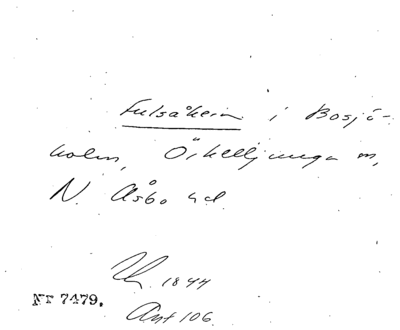 Fulsåkern i Bosjö-
holm, Örkelljunga sn,
N. Åsbo hd
1844
Nr 7479.
Ant 106